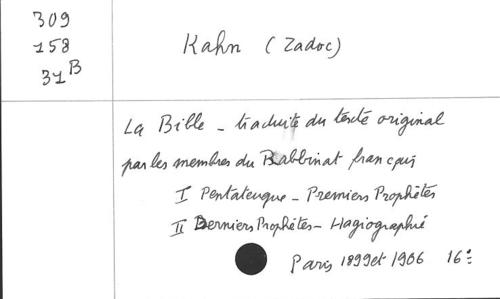 309
158
31B
Kahn (Zadoc)
La Bible - traduite du texte original
par les membres du Rabbinat français
I Pentateuque - Premiers Prophètes
II Derniers Prophètes - Hagiographie
Paris 1899 et 1906 16°